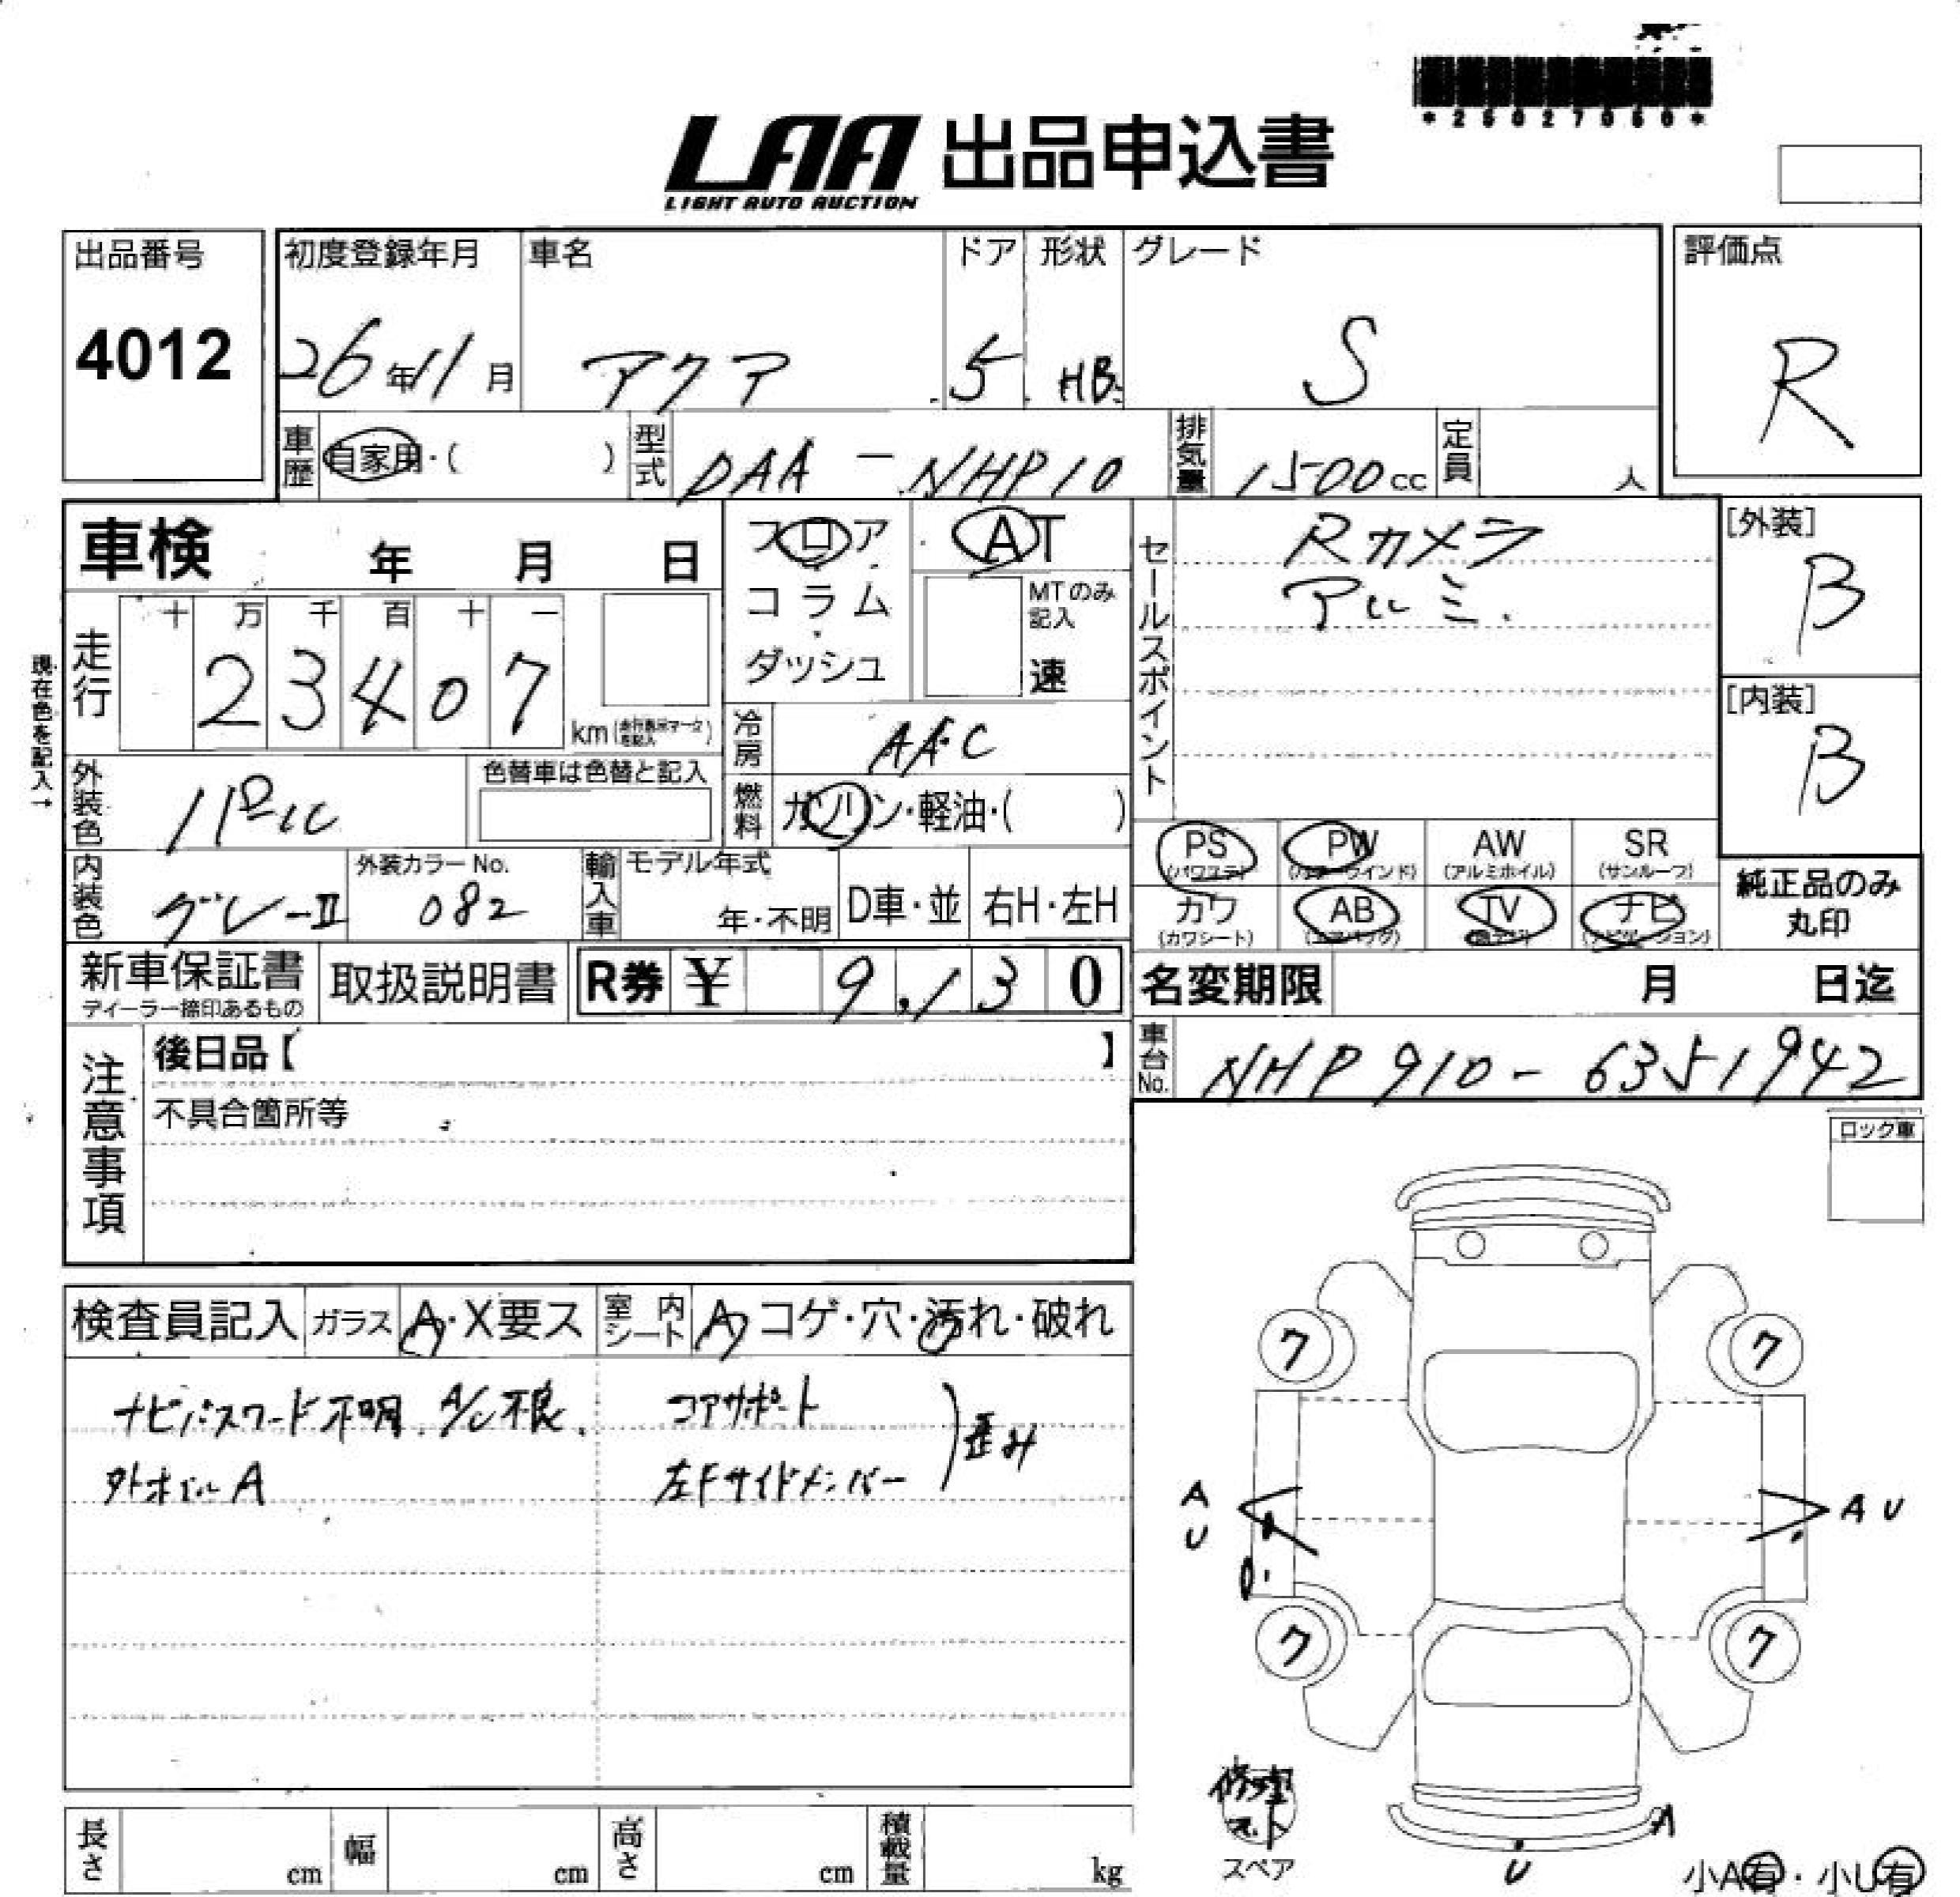 *25027060*
LAA 出品申込書
LIGHT AUTO AUCTION
出品番号 初度登録年月 車名 ドア 形状 グレード 評価点
4012 26年11月 アクア 5 HB S R
車歴 自家用・( ) 型式 DAA-NHP10 排気量 1500cc 定員 人
車検 年 月 日 フロア AT セールスポイント Rカメラ [外装]
アルミ. B
コラム MTのみ記入
ダッシュ 速
現在色を記入→
走行 十 万 千 百 十 一
23407 km
冷房 AAC [内装]
B
外装色 パール 色替車は色替と記入 燃料 ガソリン・軽油・( )
PS PW AW SR
(パワステ) (パワーウインド) (アルミホイル) (サンルーフ)
内装色 グレーII 外装カラーNo. 082 輸入車 モデル年式 年・不明 D車・並 右H・左H
カワ AB TV ナビ 純正品のみ
(カワシート) (エアバッグ) (ナビゲーション) 丸印
新車保証書 取扱説明書 R券 ¥ 9,130 名変期限 月 日迄
ディーラー捺印あるもの
車台No. NHP910-6351942
注意事項 後日品【 】
不具合箇所等
ロック車
検査員記入 ガラス A・X要ス 室内シート A コゲ・穴・汚れ・破れ
ナビパスワード不明. A/C不良. コアサポート
歪み
外ホイルA 左Fサイドメンバー
ワ ワ
A
U
A U
ワ ワ
修理キット
スペア
A
U
小A有・小U有
長さ cm 幅 cm 高さ cm 積載量 kg